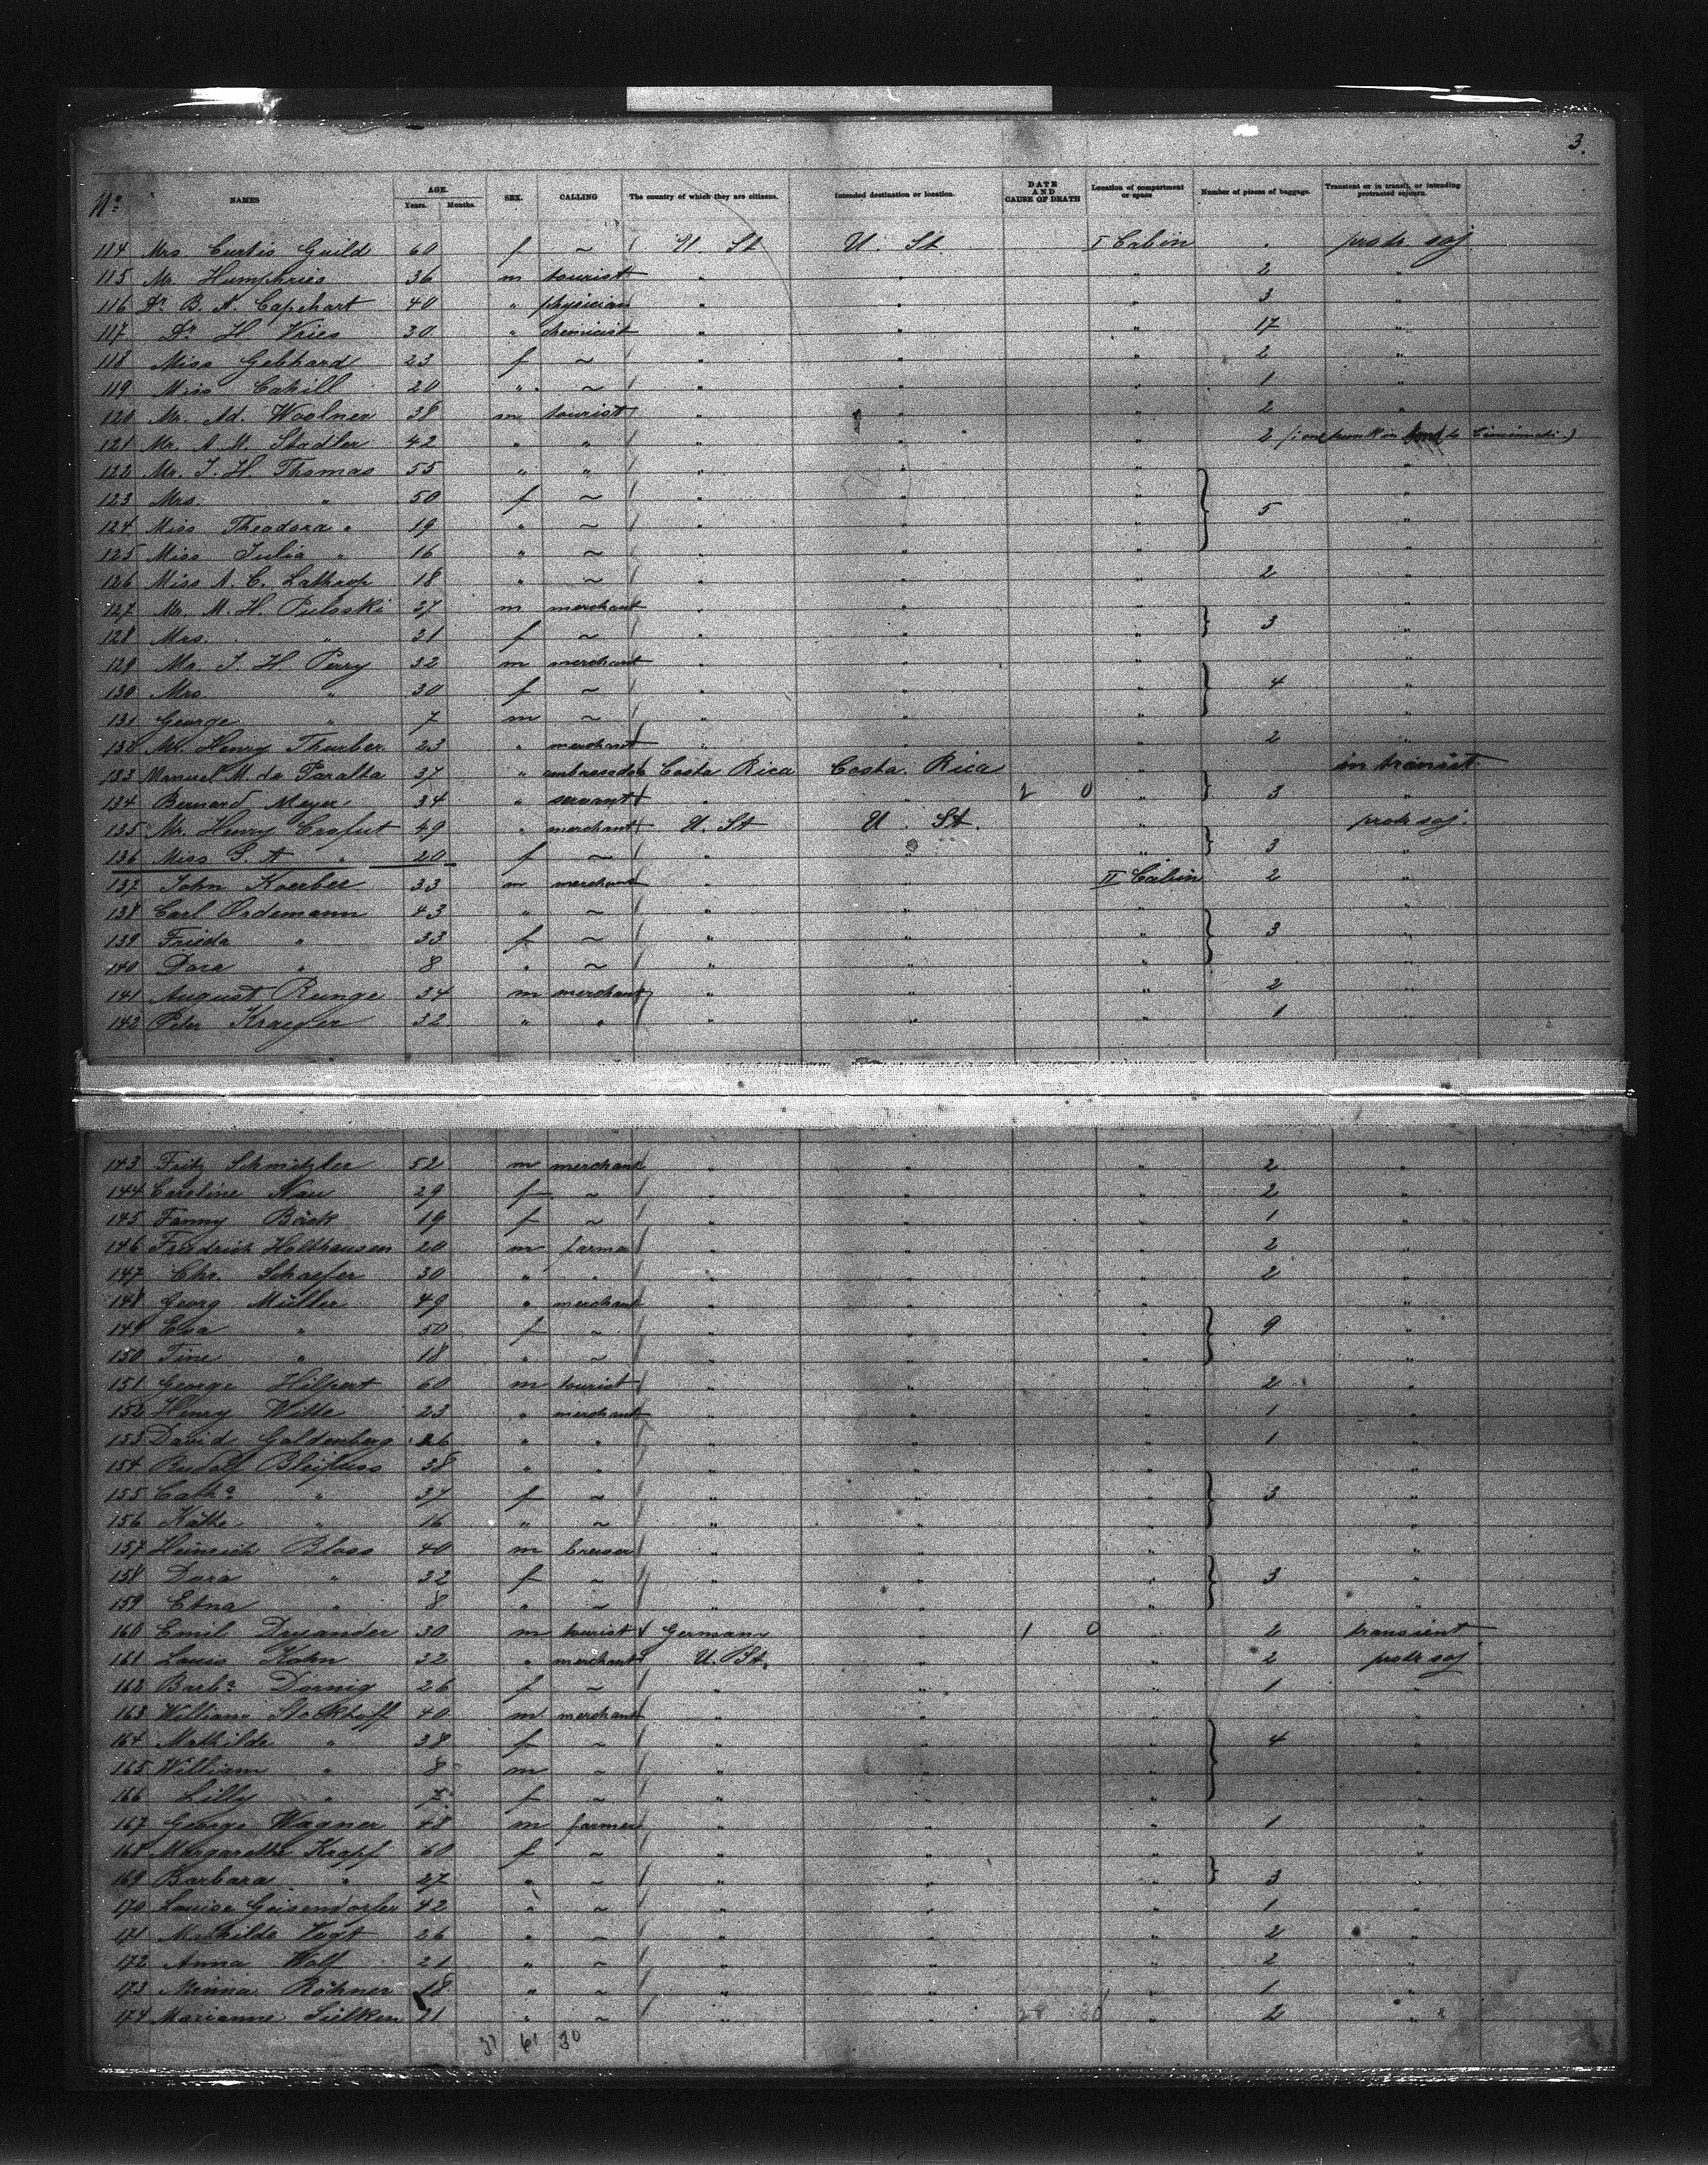 3.
No. NAMES AGE. Years. Months. SEX. CALLING The country of which they are citizens. Intended destination or location. DATE AND CAUSE OF DEATH Location of compartment or space Number of pieces of baggage. Transient or in transit, or intending protracted sojourn.
114 Mrs. Curtis Guild 60 f ~ U. St U. St. I Cabin " protr soj.
115 Mr. Humphries 36 m tourist " " " 2 "
116 Dr. B. A. Capehart 40 " physician " " " 3 "
117 Dr. H. Vries 30 " chemicist " " " 17 "
118 Miss Gebhard 23 f ~ " " " 2 "
119 Miss Cahill 20 " ~ " " " 1 "
120 Mr. Ad. Woolner 38 m tourist " " " 2 "
121 Mr. A. M. Stadler 42 " " " " " 2 (: one trunk in to Cincinnati :)
122 Mr. J. H. Thomas 55 " " " " " "
123 Mrs. " 50 f ~ " " " "
124 Miss Theodora " 19 " ~ " " " 5 "
125 Miss Julia " 16 " ~ " " " "
126 Miss A. C. Lathrop 18 " ~ " " " 2 "
127 Mr. M. H. Pulaski 37 m merchant " " " "
128 Mrs. " 31 f ~ " " " 3 "
129 Mr. J. H. Perry 32 m merchant " " " "
130 Mrs. " 30 f ~ " " " 4 "
131 George " 7 m ~ " " " "
132 Mr. Henry Thurber 23 " merchant " " " 2 "
133 Manuel M. de Peralta 37 " ambassador Costa Rica Costa Rica " in transit
134 Bernard Meyer 34 " servant " " 2 0 " 3 "
135 Mr. Henry Crofut 49 " merchant U. St U. St. " protr soj.
136 Miss S. A " 20 f ~ " " " 3 "
137 John Koerber 33 m merchant " " II Cabin 2 "
138 Carl Ordemann 43 " ~ " " " "
139 Frieda " 33 f ~ " " " 3 "
140 Dora " 8 " ~ " " " "
141 August Runge 34 m merchant " " " 2 "
142 Peter Kraeger 32 " " " " " 1 "
143 Fritz Schnitzler 52 m merchant " " " 2 "
144 Caroline Nau 29 f ~ " " " 2 "
145 Fanny Bäck 19 f ~ " " " 1 "
146 Friedrich Holthausen 20 m farmer " " " 2 "
147 Chr. Schaefer 30 " " " " " 2 "
148 Georg Müller 49 " merchant " " " "
149 Eva " 50 f ~ " " " 9 "
150 Tine " 18 " ~ " " " "
151 George Hilpert 60 m tourist " " " 2 "
152 Henry Witte 23 " merchant " " " 1 "
153 David Goldenberg 26 " " " " " 1 "
154 Rudolf Bleifuss 38 " " " " " "
155 Catha. " 37 f ~ " " " 3 "
156 Käthe " 16 " ~ " " " "
157 Heinrich Bloss 40 m breuer " " " "
158 Dora " 32 f ~ " " " 3 "
159 Etna " 8 " ~ " " " "
160 Emil Dryander 30 m tourist Germany " 1 0 " 2 transient
161 Louis Kohn 32 " merchant U. St. " " 2 protr soj
162 Barba. Dornig 26 f ~ " " " 1 "
163 William Stockhoff 40 m merchant " " " "
164 Mathilde " 38 f ~ " " " 4 "
165 William " 8 m ~ " " " "
166 Lilly " 7 f ~ " " " "
167 George Wagner 48 m farmer " " " 1 "
168 Margarethe Krapf 60 f ~ " " " "
169 Barbara " 27 " ~ " " " 3 "
170 Louise Geisendorfer 42 " ~ " " " 1 "
171 Mathilde Vogt 26 " ~ " " " 2 "
172 Anna Wolf 21 " ~ " " " 2 "
173 Minna Röhner 18 " ~ " " " 1 "
174 Marianne Sielken 21 " ~ " " 28 30 " 2 "
31 61 30